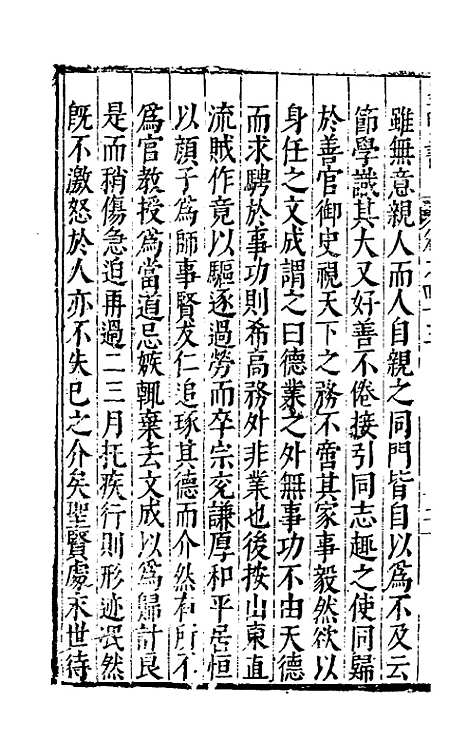 雖無意親人而人自親之同門皆自以爲不及云
節學識其大又好善不倦接引同志趣之使同歸
於善官御史視天下之務不啻其家事毅然欲以
身任之文成謂之曰德業之外無事功不由天德
而求騁於事功則希高務外非業也後按山東直
流賊作竟以驅逐過勞而卒宗兗謙厚和平居恒
以顔子爲師事賢友仁追琢其德而介然有所不
爲官教授爲當道忌嫉輒棄去文成以爲歸計良
是而稍傷急迫再過二三月托疾行則形迹泯然
旣不激怒於人亦不失己之介矣聖賢處末世待